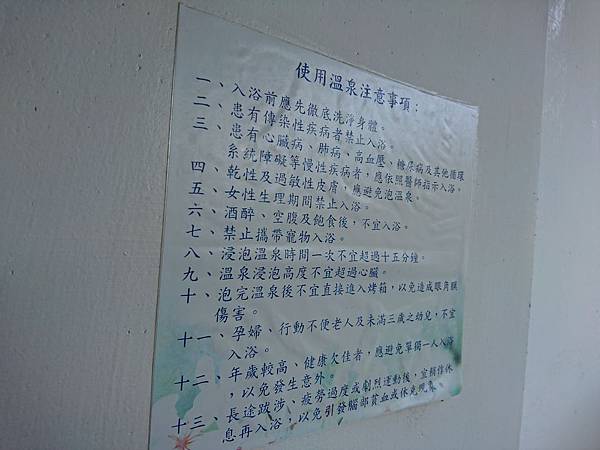 使用溫泉注意事項：
一、入浴前應先徹底洗淨身體。
二、患有傳染性疾病者禁止入浴。
三、患有心臟病、肺病、高血壓、糖尿病及其他循環
系統障礙等慢性疾病者，應依照醫師指示入浴。
四、乾性及過敏性皮膚，應避免泡溫泉。
五、女性生理期間禁止入浴。
六、酒醉、空腹及飽食後，不宜入浴。
七、禁止攜帶寵物入浴。
八、浸泡溫泉時間一次不宜超過十五分鐘。
九、溫泉浸泡高度不宜超過心臟。
十、泡完溫泉後不宜直接進入烤箱，以免造成眼角膜
傷害。
十一、孕婦、行動不便老人及未滿三歲之幼兒，不宜
入浴。
十二、年歲較高、健康欠佳者，應避免單獨一人入浴
，以免發生意外。
十三、長途跋涉、疲勞過度或劇烈運動後，宜稍作休
息再入浴，以免引發腦部貧血或休克現象。